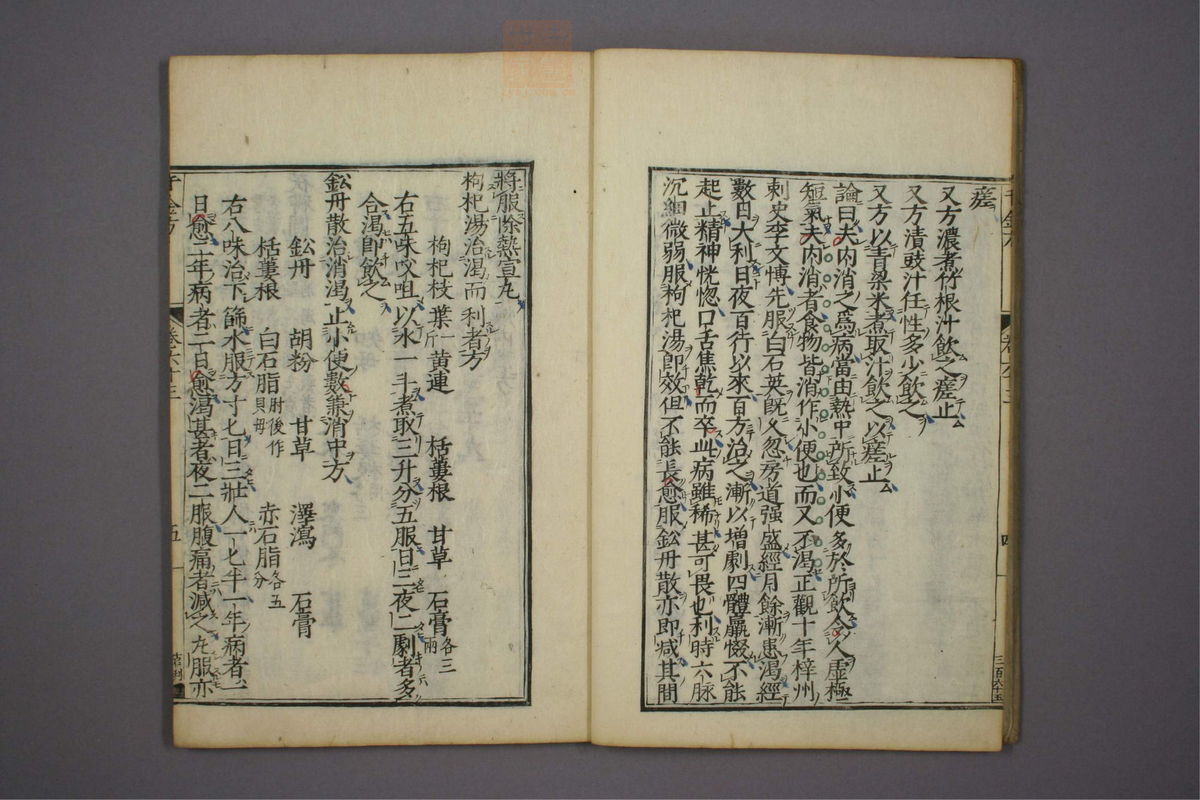 瘥
又方濃煮竹根汁飲之瘥止
又方漬豉汁任性多少飲之
又方以青梁米煮取汁飲之以瘥止
論曰夫内消之爲病當由熱中所致小便多於所飲令人虛極
短氣夫内消者食物皆消作小便也而又不渇正觀十年梓州
刺史李文博先服白石英旣久忽房道强盛經月餘漸患渇經
數日大利日夜百行以來百方治之漸以増劇四體羸惙不能
起止精神恍惚口舌焦乾而卒此病雖稀甚可畏也利時六脉
沉細微弱服枸杞湯即效但不能長愈服鈆丹散亦即减其間
將服除熱宣丸
枸杞湯治渇而利者方
枸杞枝葉一斤 黄連 栝蔞根 甘草 石膏各三兩
右五味㕮咀以水一斗煮取三升分五服日三夜二劇者多
合渇即飲之
鈆丹散治消渇止小便數兼消中方
鈆丹 胡粉 甘草 澤瀉 石膏
栝蔞根 白石脂肘後作貝母 赤石脂各五分
右八味治下篩水服方寸七日三壯人一七半一年病者一
日愈二年病者二日愈渇甚者夜二服腹痛者減之丸服亦
千金方 卷六十三 五
四
三百六十五